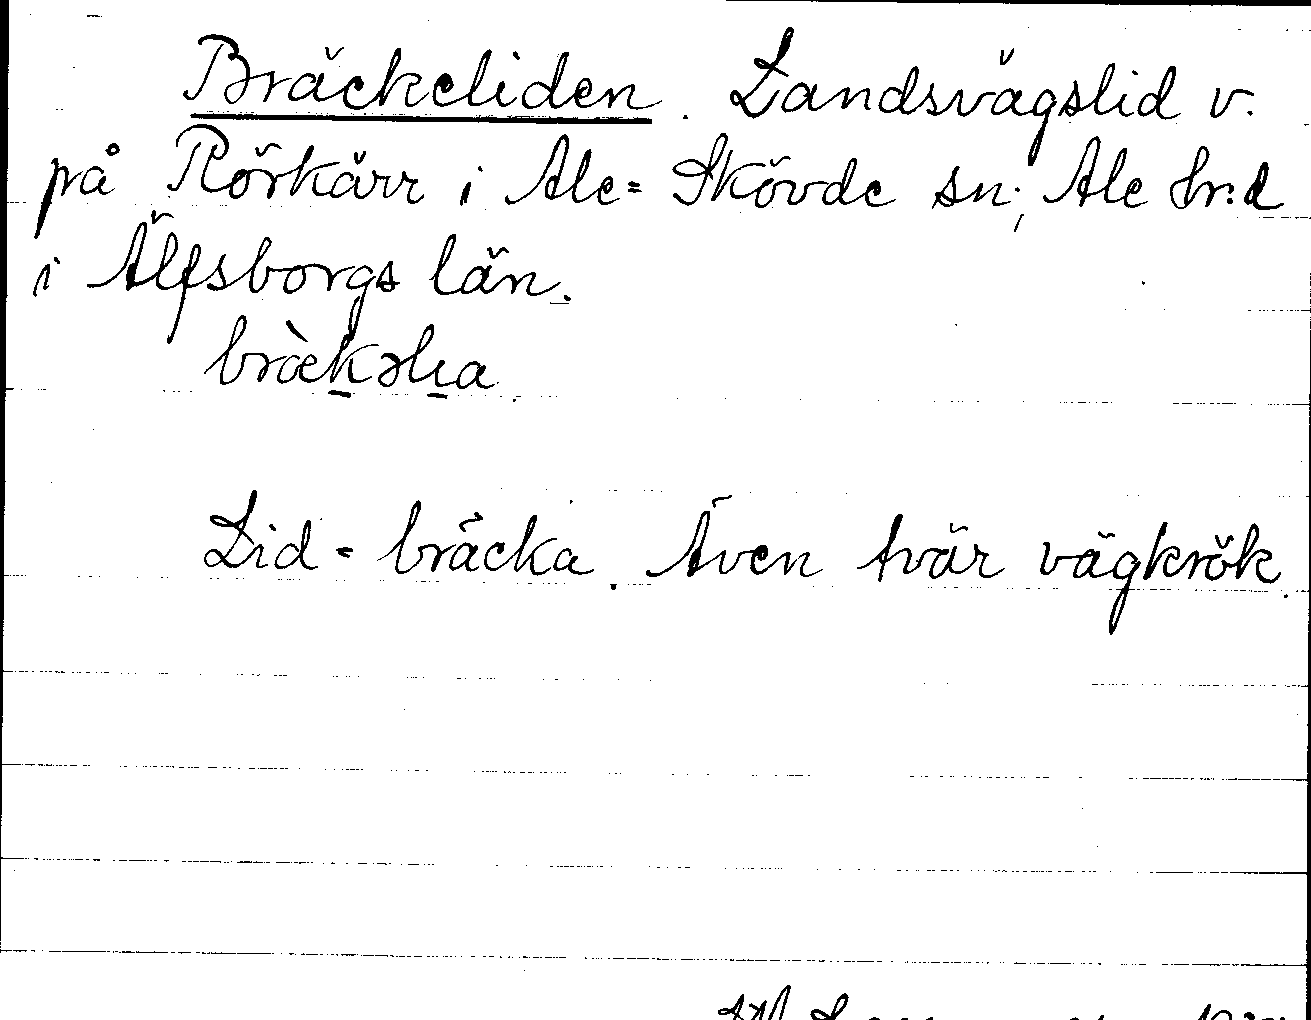 Bräckeliden. Landsvägslid v.
på Rörkärr i Ale=Skövde sn; Ale hr:d
i Älfsborgs län.
bræ̀kəlia
Lid = bräcka. Även tvär vägkrök.